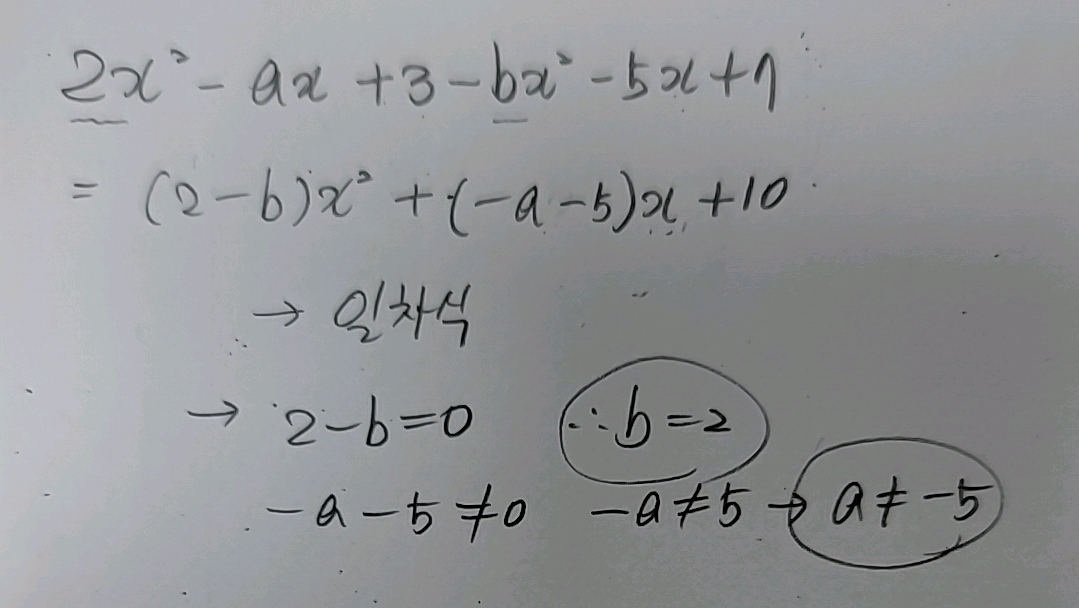 2x² - ax + 3 - bx² - 5x + 7
= (2-b)x² + (-a-5)x + 10
→ 일차식
→ 2-b=0 ∴b=2
-a-5≠0 -a≠5 → a≠-5